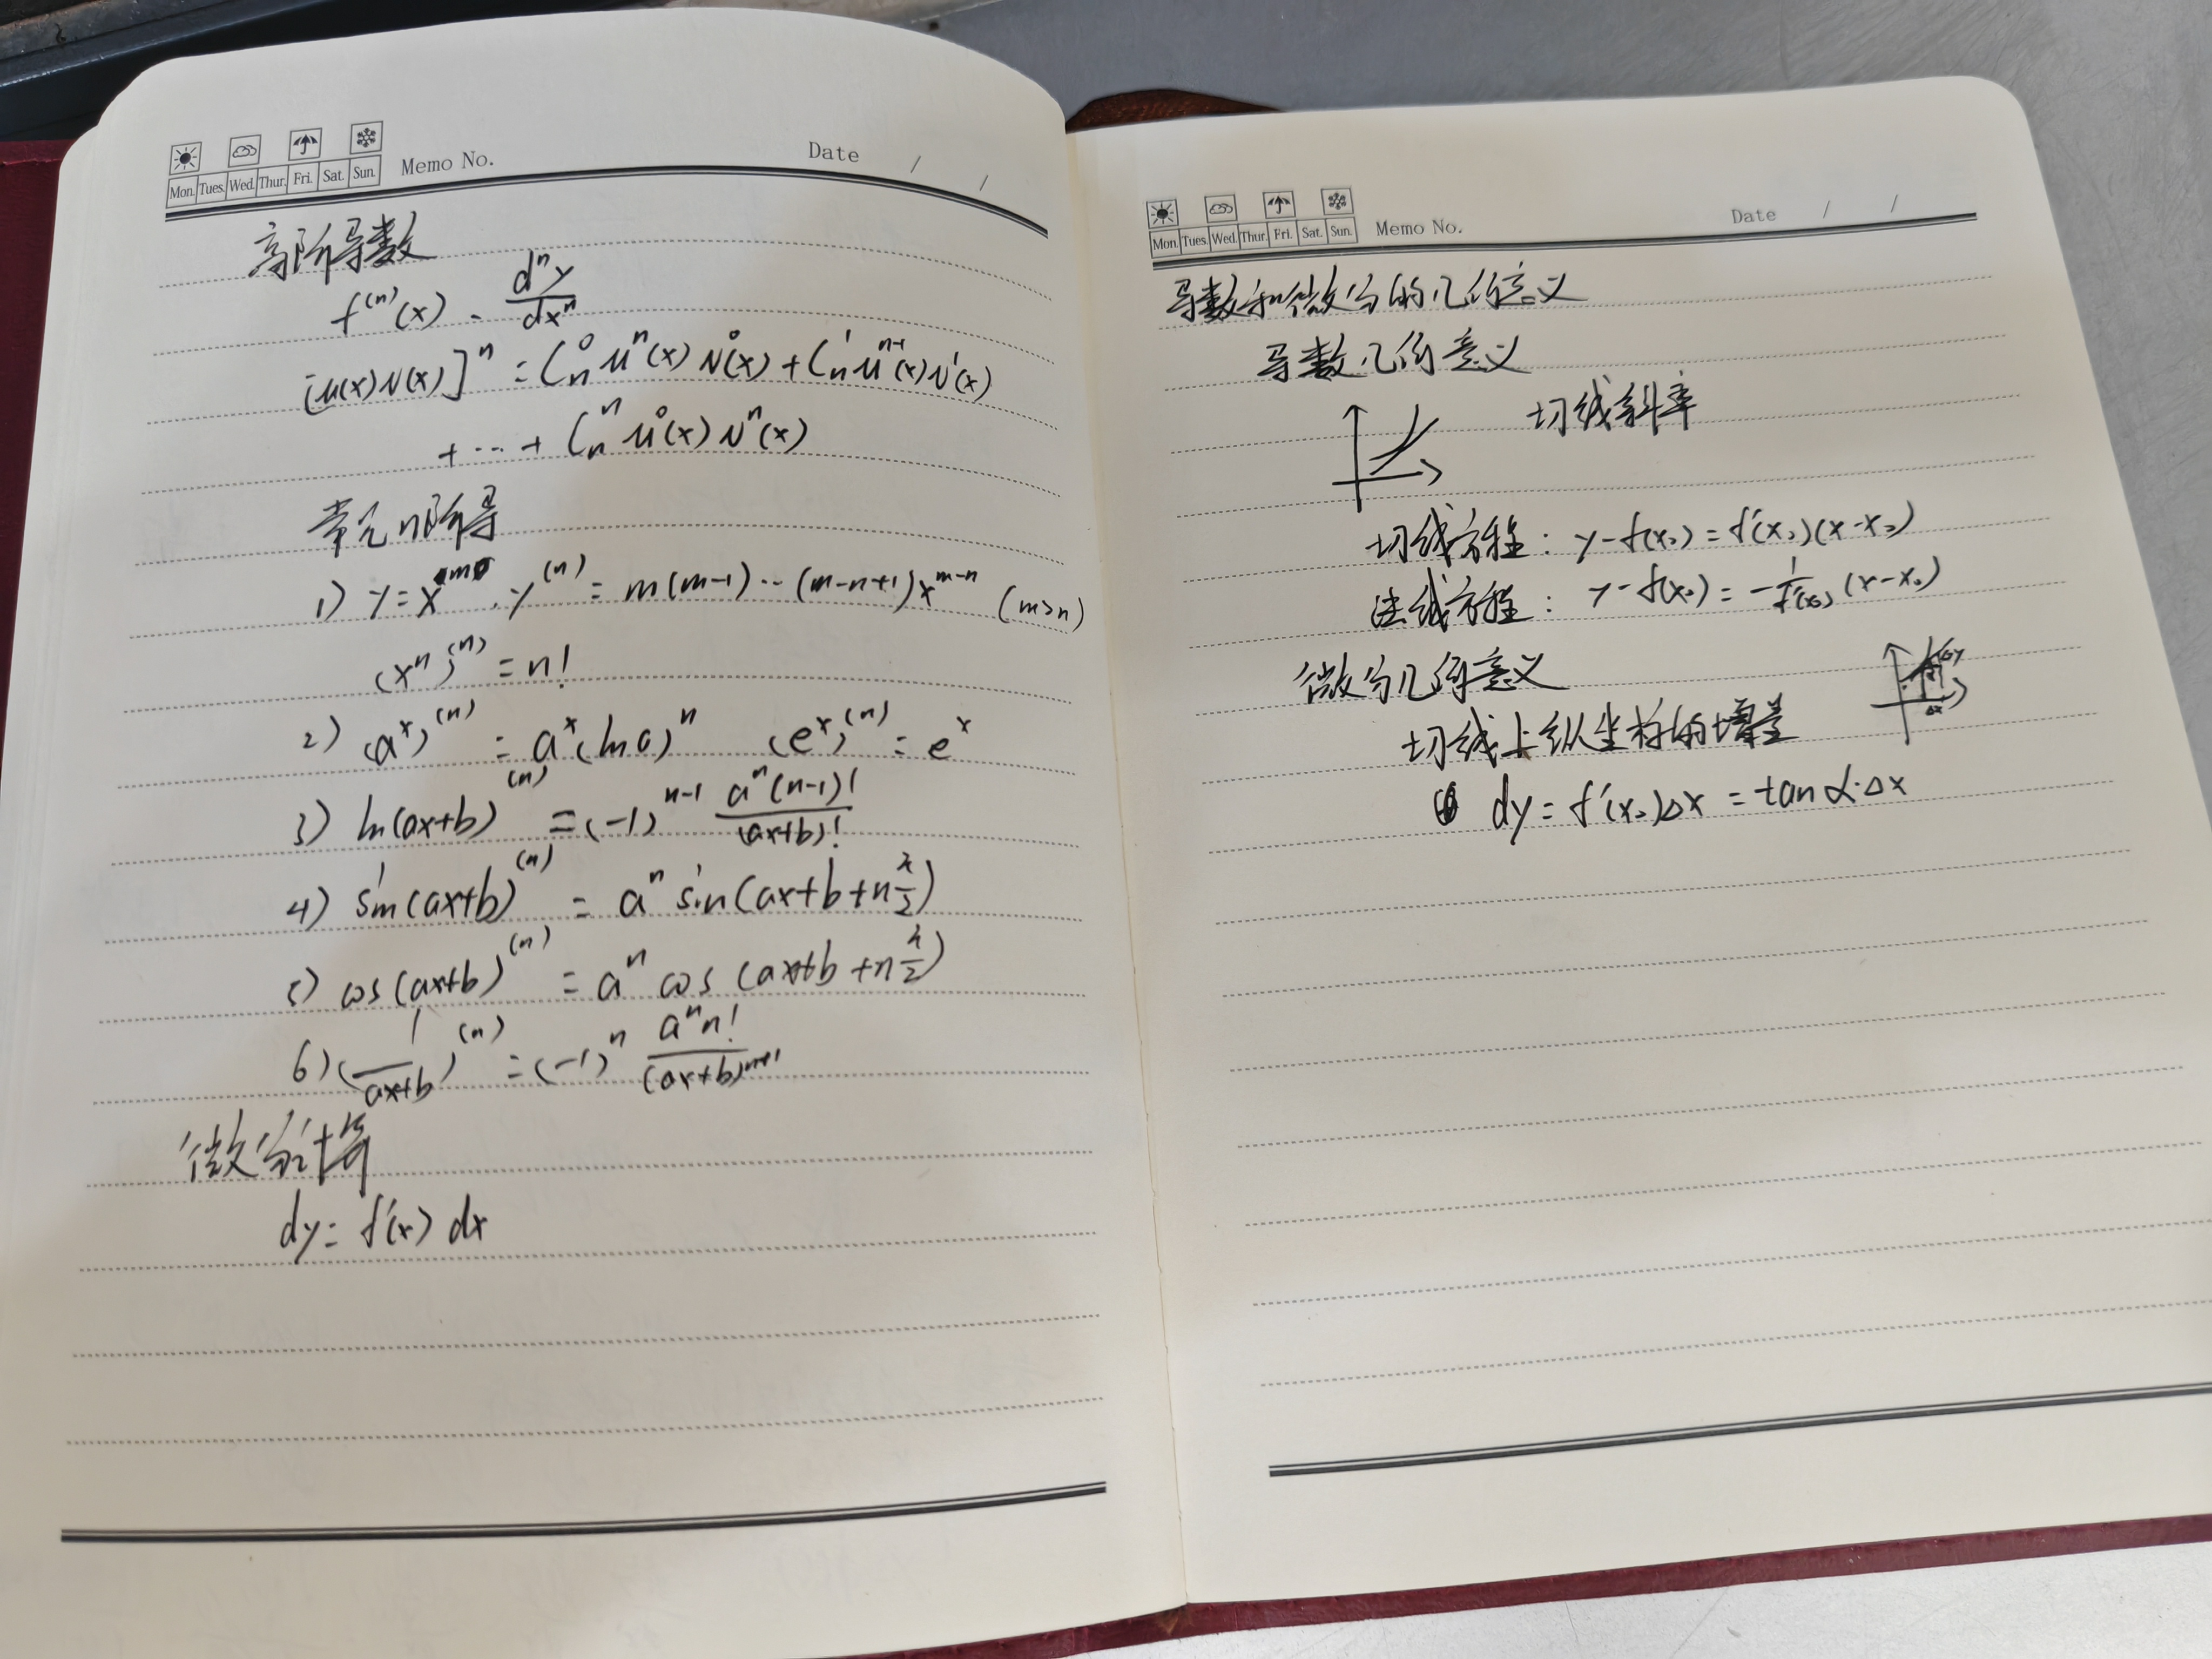 Mon. Tues. Wed. Thur. Fri. Sat. Sun. Memo No. Date / /
高阶导数
f⁽ⁿ⁾(x) = dⁿy/dxⁿ
[u(x)v(x)]ⁿ = Cₙ⁰ uⁿ(x) v⁰(x) + Cₙ¹ uⁿ⁻¹(x) v¹(x)
+ ... + Cₙⁿ u⁰(x) vⁿ(x)
常见n阶导
1) y = xᵐ, y⁽ⁿ⁾ = m(m-1)...(m-n+1)xᵐ⁻ⁿ (m>n)
(xⁿ)⁽ⁿ⁾ = n!
2) (aˣ)⁽ⁿ⁾ = aˣ(ln a)ⁿ (eˣ)⁽ⁿ⁾ = eˣ
3) ln(ax+b)⁽ⁿ⁾ = (-1)ⁿ⁻¹ aⁿ(n-1)!/(ax+b)!
4) sin(ax+b)⁽ⁿ⁾ = aⁿ sin(ax+b+n π/2)
5) cos(ax+b)⁽ⁿ⁾ = aⁿ cos(ax+b+n π/2)
6) (1/(ax+b))⁽ⁿ⁾ = (-1)ⁿ aⁿn!/(ax+b)ⁿ⁺¹
微分计算
dy = f'(x) dx
Mon. Tues. Wed. Thur. Fri. Sat. Sun. Memo No. Date / /
导数和微分的几何意义
导数几何意义
切线斜率
切线方程: y-f(x₀) = f'(x₀)(x-x₀)
法线方程: y-f(x₀) = -1/f'(x₀) (x-x₀)
微分几何意义
Δy
Δx
切线上纵坐标的增量
dy = f'(x₀)Δx = tan α·Δx